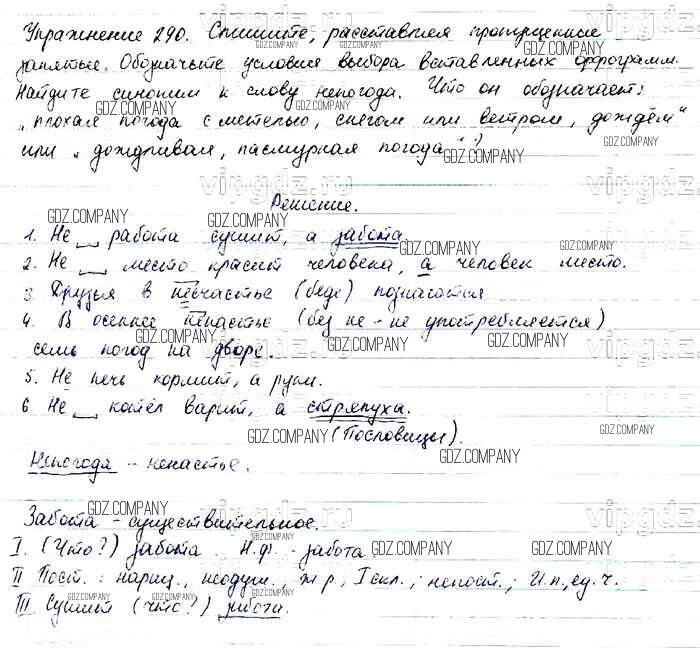 Упражнение 290. Спишите, расставляя пропущенные
запятые. Обозначьте условия выбора вставленных орфограмм.
Найдите синоним к слову непогода. Что он обозначает:
„плохая погода с метелью, снегом или ветром, дождём"
или „дождливая, пасмурная погода"?
Решение.
1. Не работа сушит, а забота.
2. Не место красит человека, а человек место.
3. Друзья в несчастье (беде) познаются
4. В осеннее ненастье (без не - не употребляется)
семь погод на дворе.
5. Не печь кормит, а руки.
6 Не котёл варит, а стряпуха.
(Пословицы).
Непогода - ненастье.
Забота - существительное.
I. (Что?) забота. Н.ф. - забота
II Пост.: нариц., неодуш., ж р, I скл.; непост.; И.п., ед.ч.
III. Сушит (что?) забота.
vipgdz.ru
GDZ.COMPANY